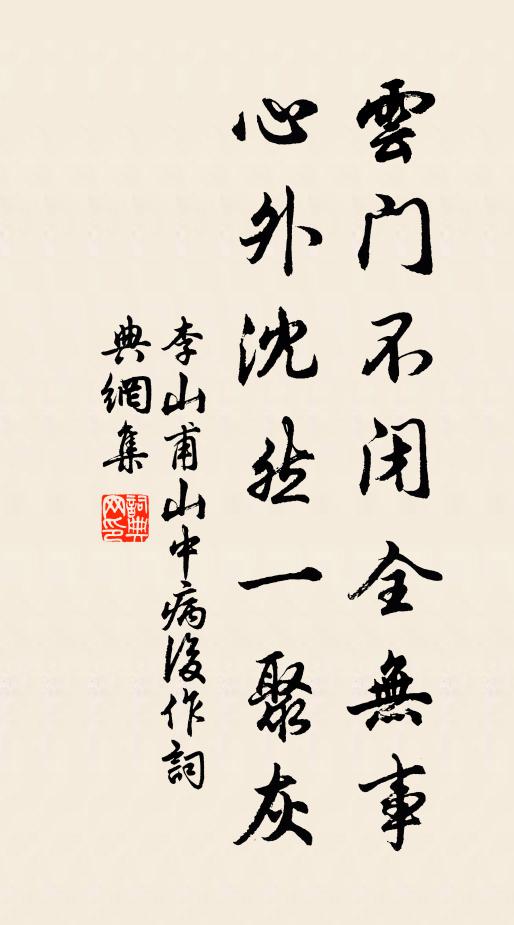 雲門不閉全無事
心外沈然一聚灰
李山甫山中病後作詞
典網集
詞典網印